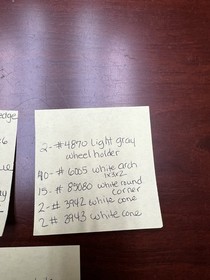 edge
2- #4870 light gray
wheel holder
40- #6005 white arch
1x3x2
15- #85080 white round
corner
2- # 3942 white cone
2 # 3943 white cone